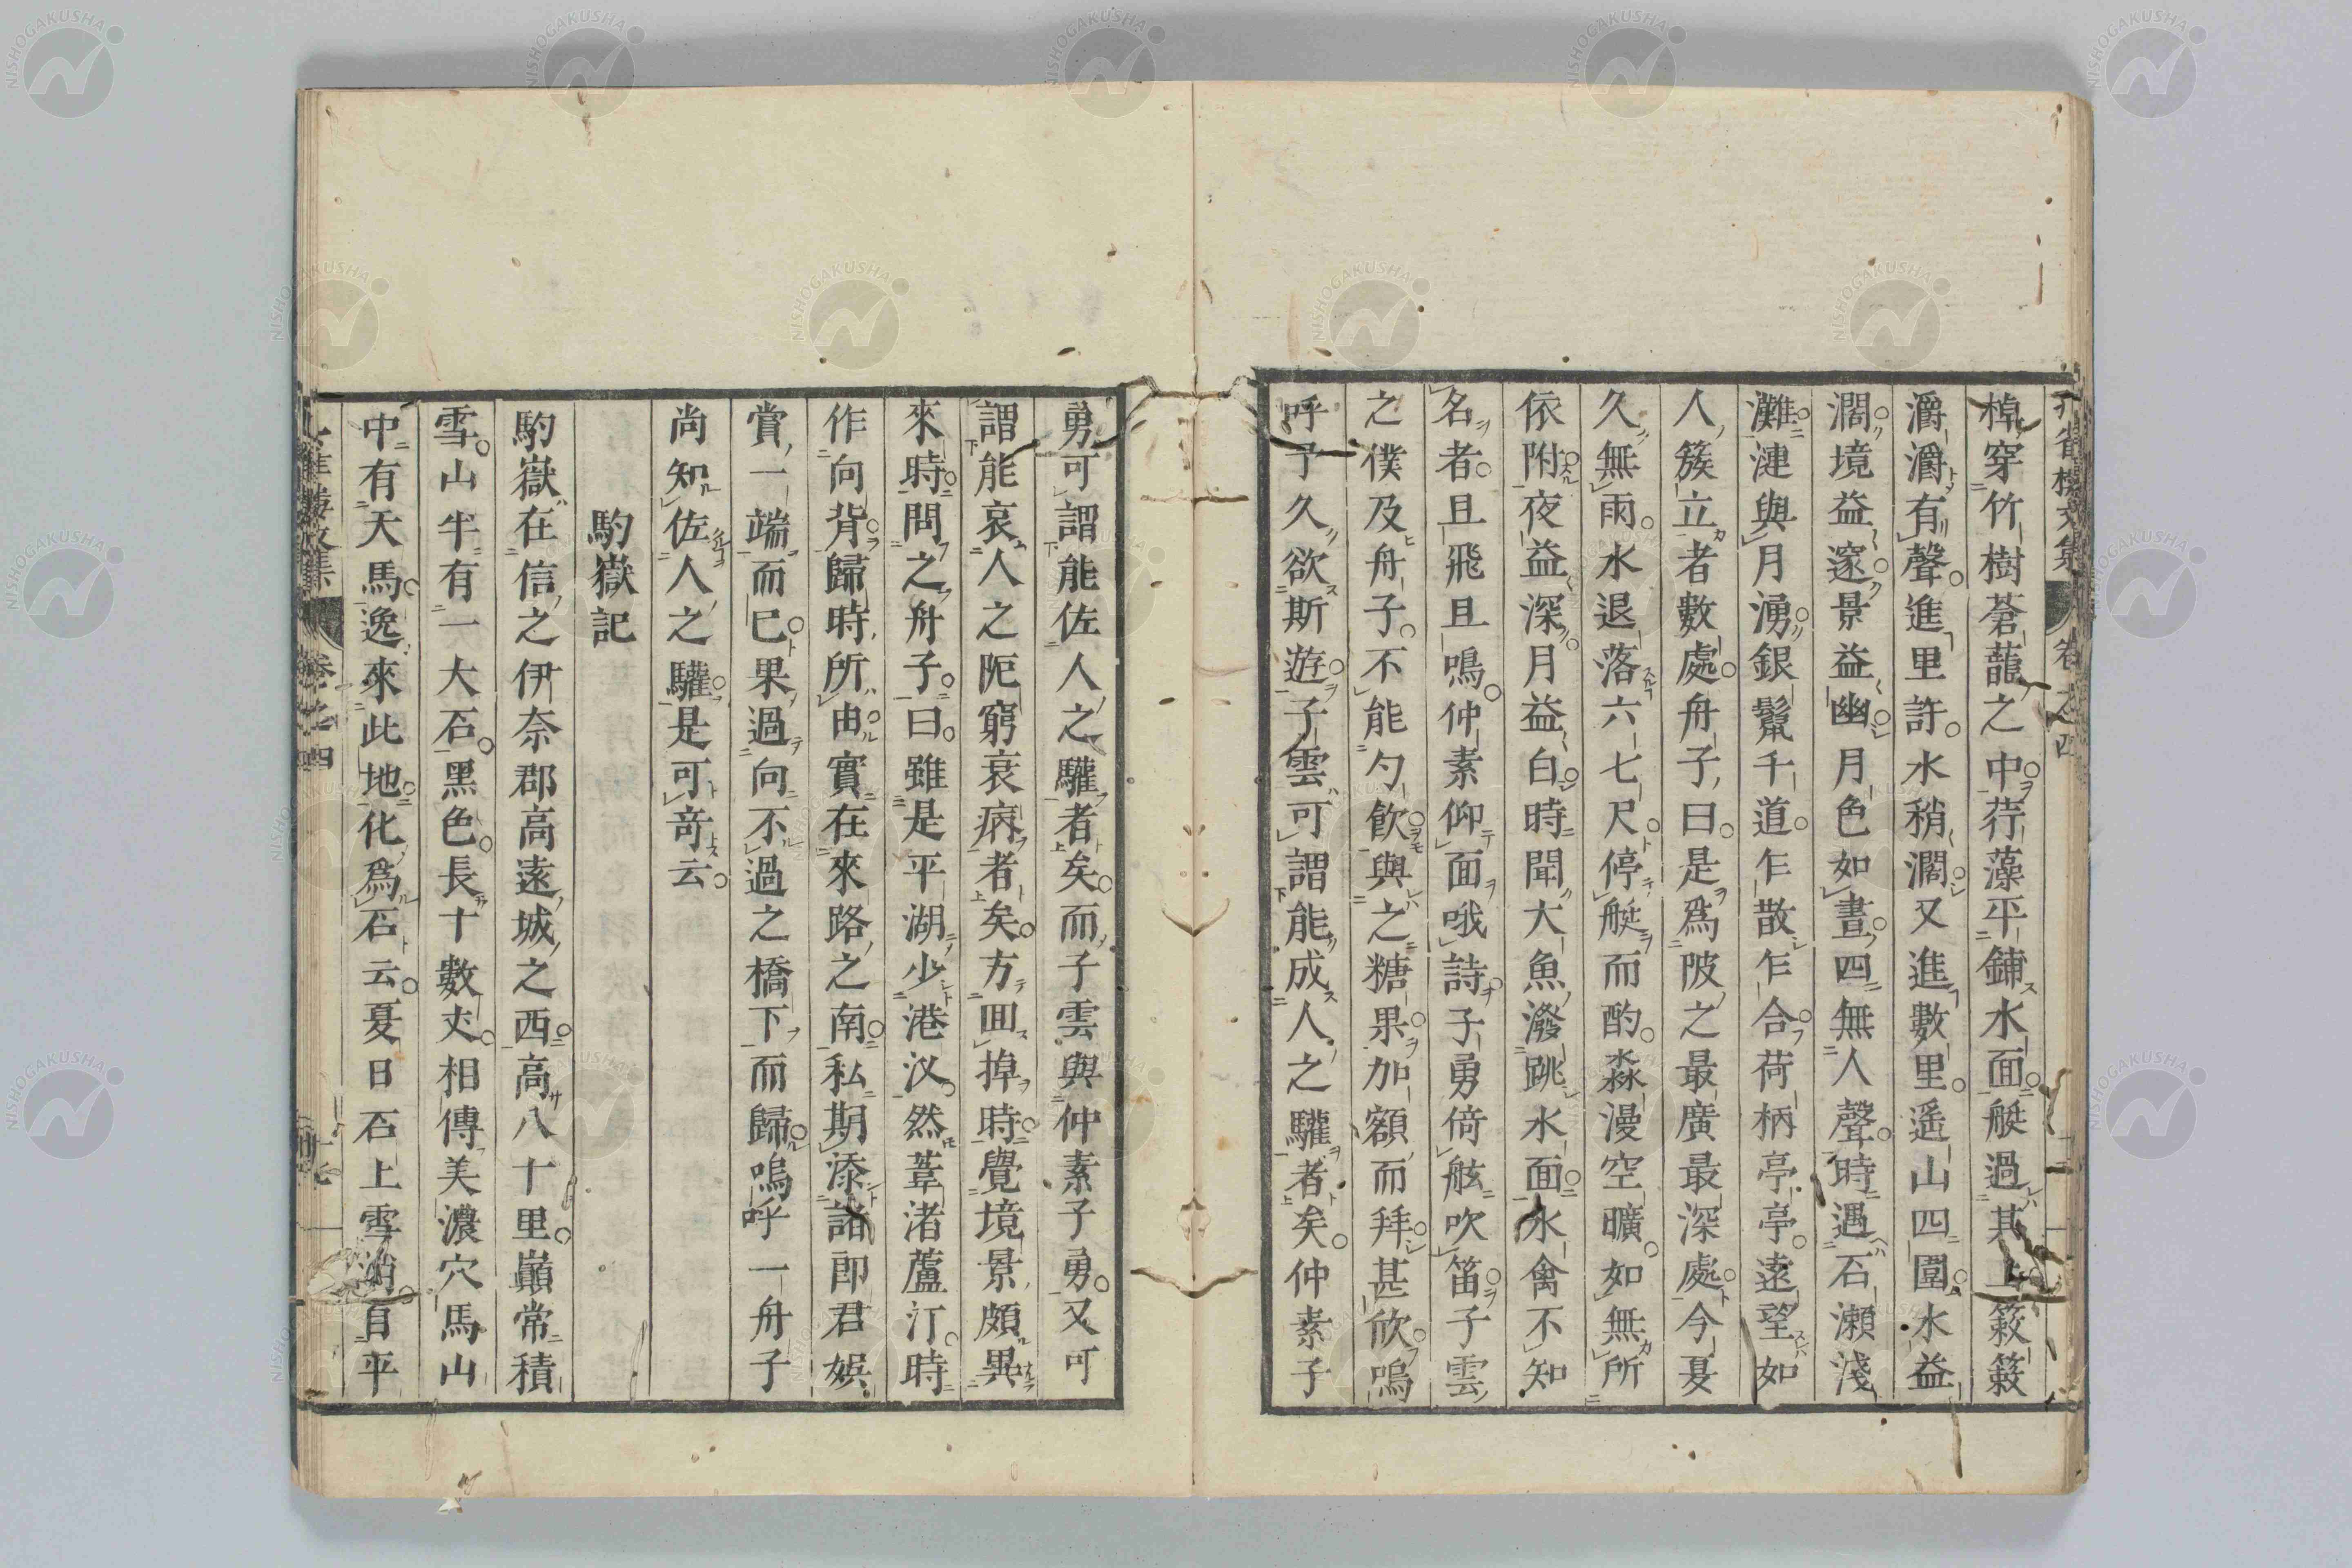 棹穿竹樹蒼蘢之中荇藻平鋪水面艇過其上簌簌
灂灂有聲進里許水稍濶又進數里遥山四圍水益
濶境益邃景益幽月色如晝四無人聲時遇石瀬淺
灘漣與月湧銀鬣千道乍散乍合荷柄亭亭遠望如
人簇立者數處舟子曰是爲陂之最廣最深處今夏
久無雨水退落六七尺停艇而酌淼漫空曠如無所
依附夜益深月益白時聞大魚潑跳水面水禽不知
名者且飛且鳴仲素仰面哦詩子勇倚舷吹笛子雲
之僕及舟子不能勺飲與之糖果加額而拜甚欣嗚
呼予久欲斯遊子雲可謂能成人之驩者矣仲素子
勇可謂能佐人之驩者矣而子雲與仲素子勇又可
謂能哀人之阨窮衰病者矣方囬掉時覺境景頗異
來時問之舟子曰雖是平湖少港汊然葦渚蘆汀時
作向背歸時所由實在來路之南私期添諸郎君娯
賞一端而已果過向不過之橋下而歸嗚呼一舟子
尚知佐人之驩是可竒云
駒嶽記
駒嶽在信之伊奈郡高遠城之西高八十里巓常積
雪山半有一大石黒色長十數丈相傳美濃穴馬山
中有天馬逸來此地化爲石云夏日石上雪消自平
卷之四